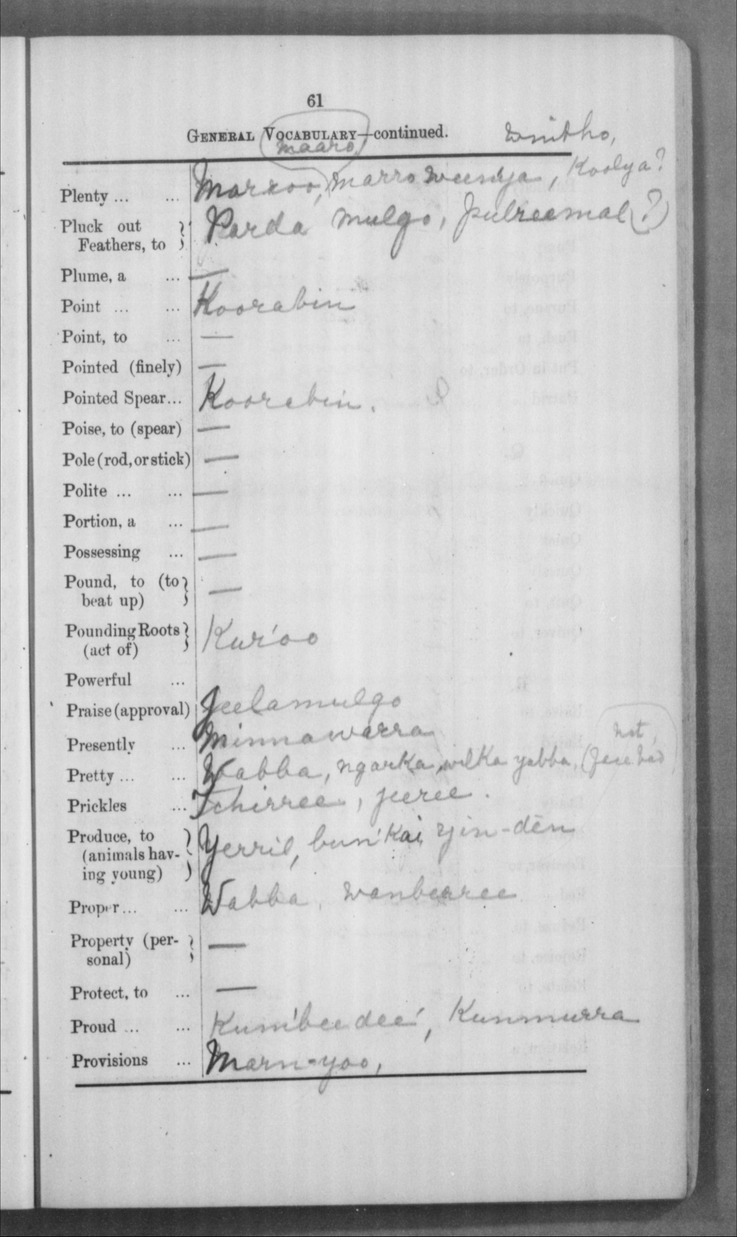 61
GENERAL VOCABULARY—continued.
maaro,
Plenty ... ... Marroo, marro weenya, Koolya?
Pluck out Feathers, to Parda mulgo, pulreemal (?)
Plume, a ... —
Point ... ... Koorabin
Point, to ... —
Pointed (finely) —
Pointed Spear... Koorabin.
Poise, to (spear) —
Pole (rod, or stick) —
Polite ... ... —
Portion, a ... —
Possessing ... —
Pound, to (to beat up) —
Pounding Roots (act of) Kur'oo
Powerful ...
Praise (approval) Jeelamulgo
Presently ... Minnawarra
not,
Pretty ... ... Wabba, ngarka, wilka yabba,
Prickles ... Tchirree, jeeree.
Produce, to (animals having young) Yerril, bun'kai, yin-dēn
Proper ... ... Wabba, wanbearee
Property (personal) —
Protect, to ... —
Proud ... ... Kum'bee dee', Kunmurra
Provisions ... Marn-yoo,